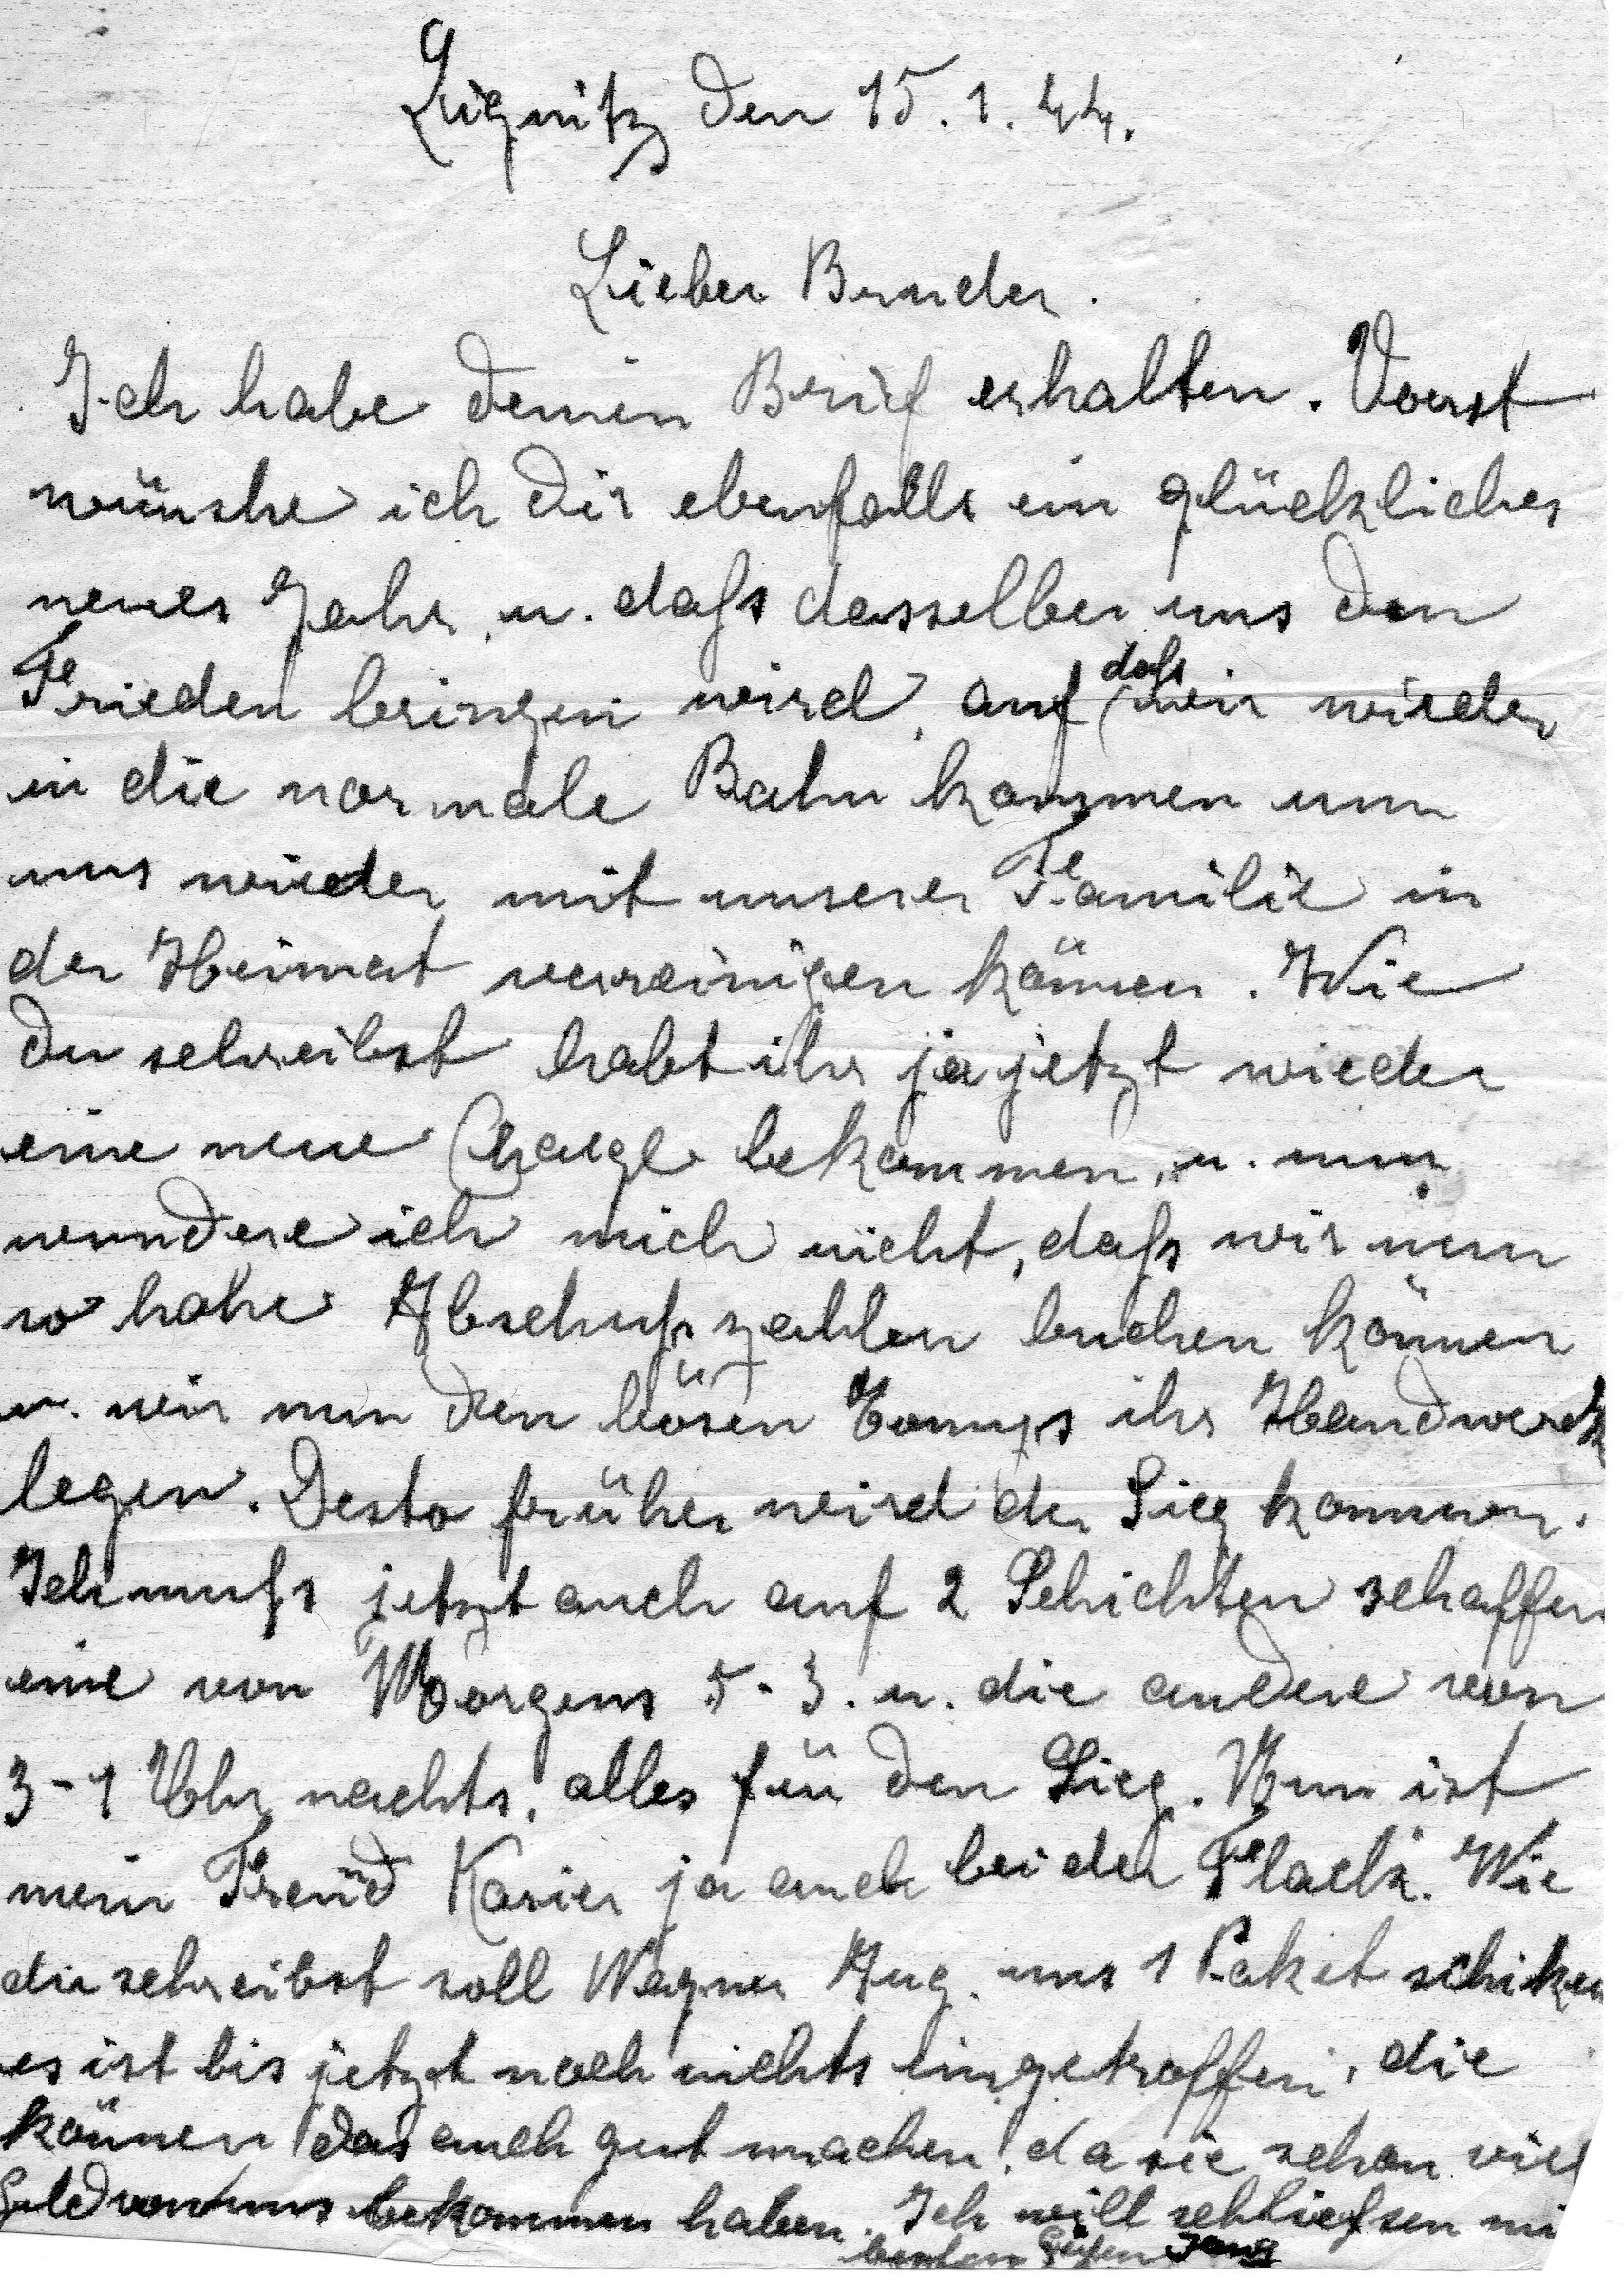 Liegnitz den 15.1.44.
Lieber Bruder.
Ich habe deinen Brief erhalten. Vorerst
wünshe ich dir ebenfalls ein glückliches
neues Jahr, u. dafs dasselbe uns den
Frieden bringen wird, auf dafs wir wieder
in die normale Bahn kommen um
uns wieder mit unserer Familie in
der Heimat vereinigen können. Wie
du schreibst habt ihr ja jetzt wieder
eine neue Charge bekommen, u. nun
wundere ich mich nicht, dafs wir nun
so hohe Abschufszahlen buchen können
u. wir nun den bösen Tomys ihr Handwerk
legen. Desto früher wird der Sieg kommen.
Ich mufs jetzt auch auf 2 Schichten schaffen
eine von Morgens 5-3. u. die andere von
3-1 Uhr nachts, alles für den Sieg. Nun ist
mein Freud ja auch bei der Flack. Wie
du schreibst soll Wagner Aug. uns 1 Paket schiken
es ist bis jetzt noch nichts eingetroffen, die
können das auch gut machen, da sie schon viel
Geld von uns bekommen haben. Ich will schliefsen mi
besten Grüfsen